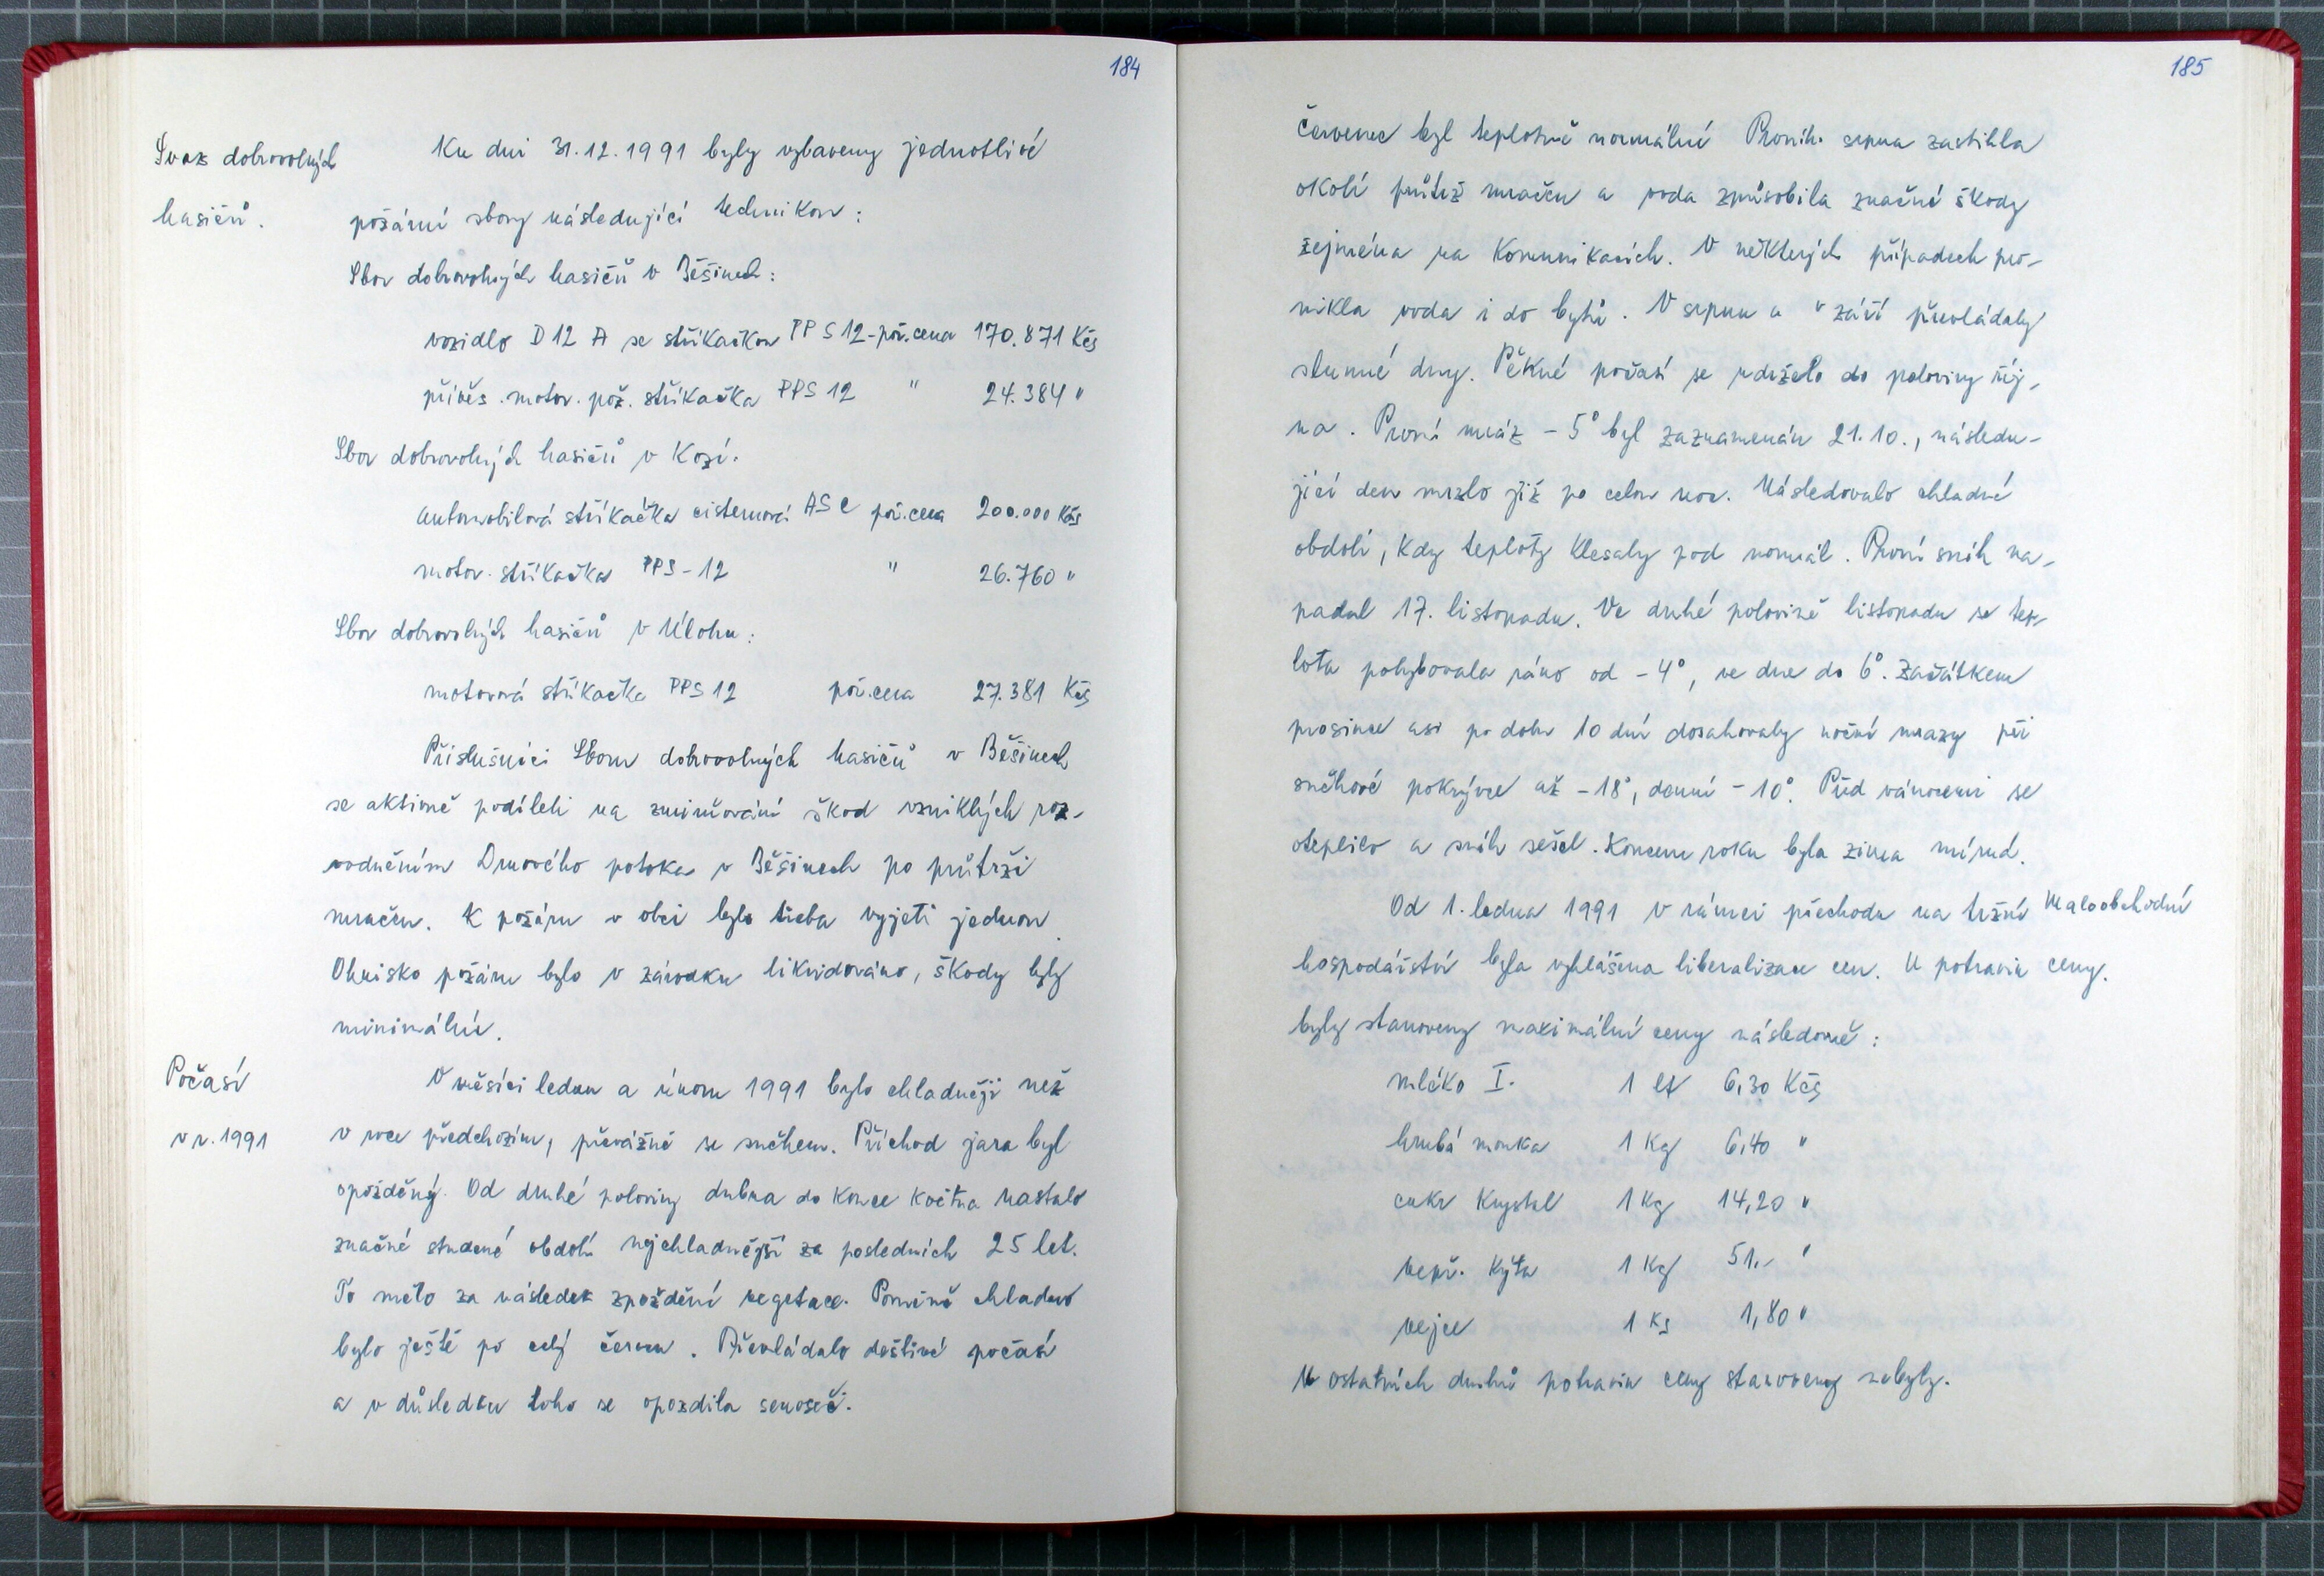 184
Svaz dobrovolných
hasičů.
Ku dni 31.12.1991 byly vybaveny jednotlivé
požární sbory následující technikou:
Sbor dobrovolných hasičů v Běšinech:
vozidlo D12 A se stříkačkou PPS 12-poř.cena 170.871 Kčs
přívěs. motor. pož. stříkačka PPS 12 " 24.384 "
Sbor dobrovolných hasičů v Kozí.
automobilová stříkačka cisternová ASC poř.cena 200.000 Kčs
motor. stříkačka PPS-12 " 26.760 "
Sbor dobrovolných hasičů v Úlohu:
motorová stříkačka PPS 12 poř.cena 27.381 Kčs
Příslušníci Sboru dobrovolných hasičů v Běšinech
se aktivně podíleli na zmirňování škod vzniklých roz-
vodněním Drnového potoka v Běšinech po průtrži
mračen. K požáru v obci bylo třeba vyjeti jednou.
Ohnisko požáru bylo v zárodku likvidováno, škody byly
minimální.
Počasí
v r. 1991
V měsíci lednu a únoru 1991 bylo chladněji než
v roce předchozím, převážně se sněhem. Příchod jara byl
opožděný. Od druhé poloviny dubna do konce května nastalo
značně studené období nejchladnější za posledních 25 let.
To mělo za následek zpoždění vegetace. Poměrně chladno
bylo ještě po celý červen. Převládalo deštivé počasí
a v důsledku toho se opozdila senoseč.
185
Červenec byl teplotně normální Prvnih. srpna zastihla
okolí průtrž mračen a voda způsobila značné škody
zejména na komunikacích. V některých případech pro-
nikla voda i do bytů. V srpnu a v září převládaly
slunné dny. Pěkné počasí se udrželo do poloviny říj-
na. První mráz -5° byl zaznamenán 21.10., následu-
jící den mrzlo již po celou noc. Následovalo chladné
období, kdy teploty klesaly pod normál. První sníh na-
padal 17. listopadu. Ve druhé polovině listopadu se tep-
lota pohybovala ráno od -4°, ve dne do 6°. Začátkem
prosince asi po dobu 10 dní dosahovaly noční mrazy při
sněhové pokrývce až -18°, denní -10°. Před vánocemi se
oteplilo a sníh sešel. Koncem roku byla zima mírná.
Od 1. ledna 1991 v rámci přechodu na tržní
Maloobchodní
hospodářství byla vyhlášena liberalizace cen. U potravin
ceny.
byly stanoveny maximální ceny následovně:
mléko I. 1 lt 6,30 Kčs
hrubá mouka 1 kg 6,40 "
cukr krystal 1 kg 14,20 "
vepř. kýta 1 kg 51,- "
vejce 1 ks 1,80 "
U ostatních druhů potravin ceny stanoveny nebyly.